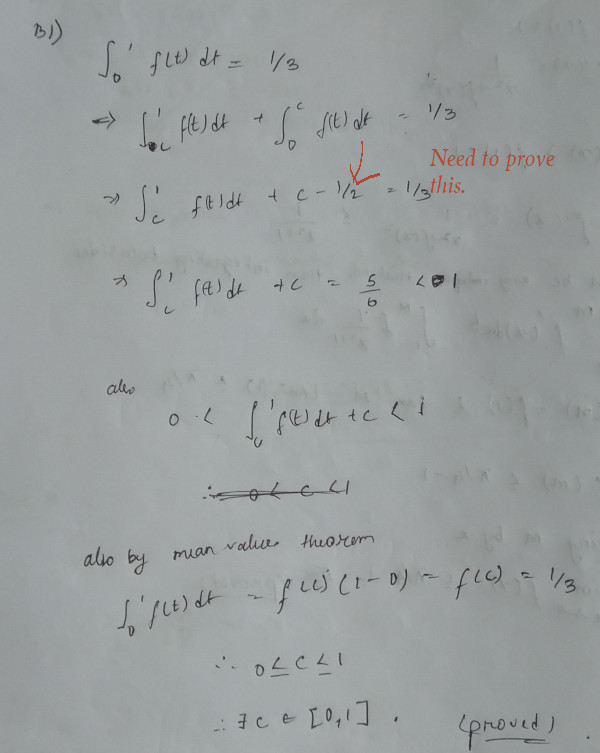 B1)
∫₀¹ f(t) dt = 1/3
⇒ ∫_c¹ f(t) dt + ∫₀^c f(t) dt = 1/3
Need to prove
this.
⇒ ∫_c¹ f(t) dt + c - 1/2 = 1/3
⇒ ∫_c¹ f(t) dt + c = 5/6 < 1
also
0 < ∫_c¹ f(t) dt + c < 1
∴ 0 < c < 1
also by mean value theorem
∫₀¹ f(t) dt = f(c) (1 - 0) = f(c) = 1/3
∴ 0 ≤ c ≤ 1
∴ ∃ c ∈ [0,1] . (proved) .